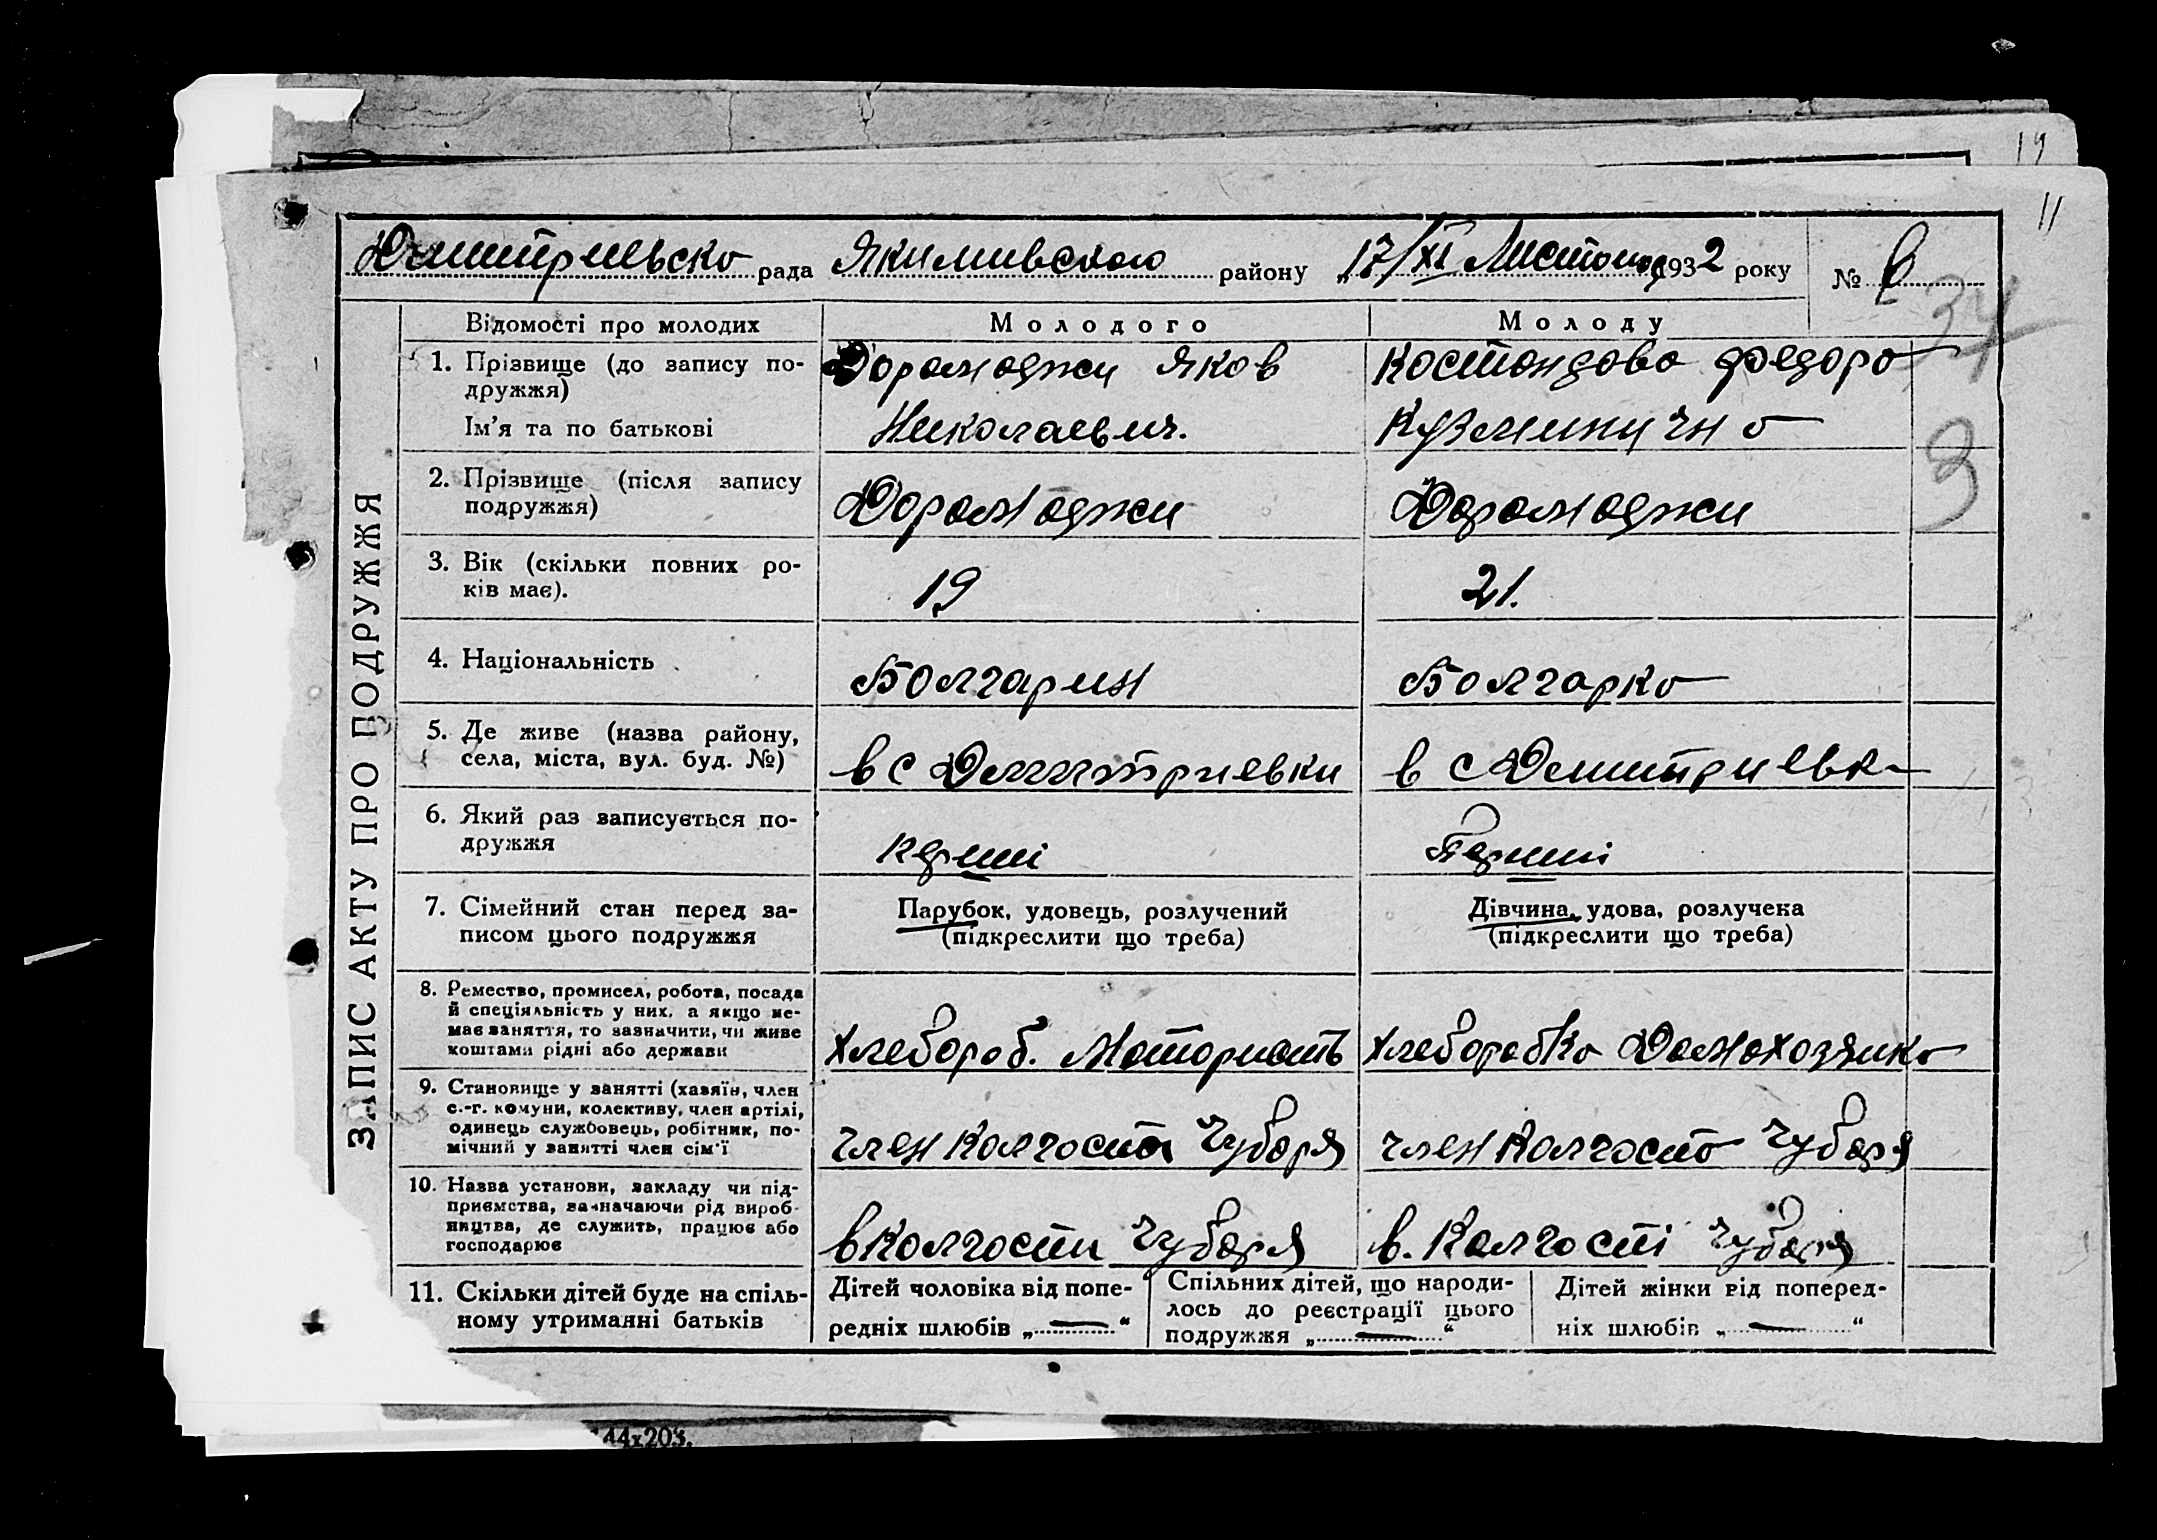 19
11
Дмитриевско рада Якимивского району „17/XI Листопад 1932 року № 6
34
Відомості про молодих Молодого Молоду
1. Прізвище (до запису по-
дружжя)
Дораманджи Яков Костандова Федора
Ім'я та по батькові Николаевич. Кузминична
3
2. Прізвище (після запису
подружжя)
Дораманджи Дораманджи
3. Вік (скільки повних ро-
ків має).
19 21.
4. Національність Болгарин Болгарка
5. Де живе (назва району,
села, міста, вул. буд. №)
в с Дмитриевки в с Дмитриевк
6. Який раз записується по-
дружжя
перший Перший
7. Сімейний стан перед за-
писом цього подружжя
Парубок, удовець, розлучений
(підкреслити що треба)
Дівчина, удова, розлучека
(підкреслити що треба)
8. Ремество, промисел, робота, посада
й спеціяльність у них, а якщо не-
має заняття, то зазначити, чи живе
коштами рідні або держави
Хлебороб. Моторист Хлеборобка Домохозяйка
9. Становище у занятті (хазяїн, член
с.-г. комуни, колективу, член артілі,
одинець службовець, робітник, по-
мічний у занятті член сім'ї
член Колгоспа Чубаря член Колгоспа Чубаря
10. Назва установи, закладу чи під-
приємства, зазначаючи рід вироб-
ництва, де служить, працює або
господарює
в Колгоспи Чубаря в. Колгоспі Чубаря
11. Скільки дітей буде на спіль-
ному утриманні батьків
Дітей чоловіка від попе-
редніх шлюбів „—“
Спільних дітей, що народи-
лось до реєстрації цього
подружжя „—“
Дітей жінки від поперед-
ніх шлюбів „—“
ЗАПИС АКТУ ПРО ПОДРУЖЖЯ
44х203.